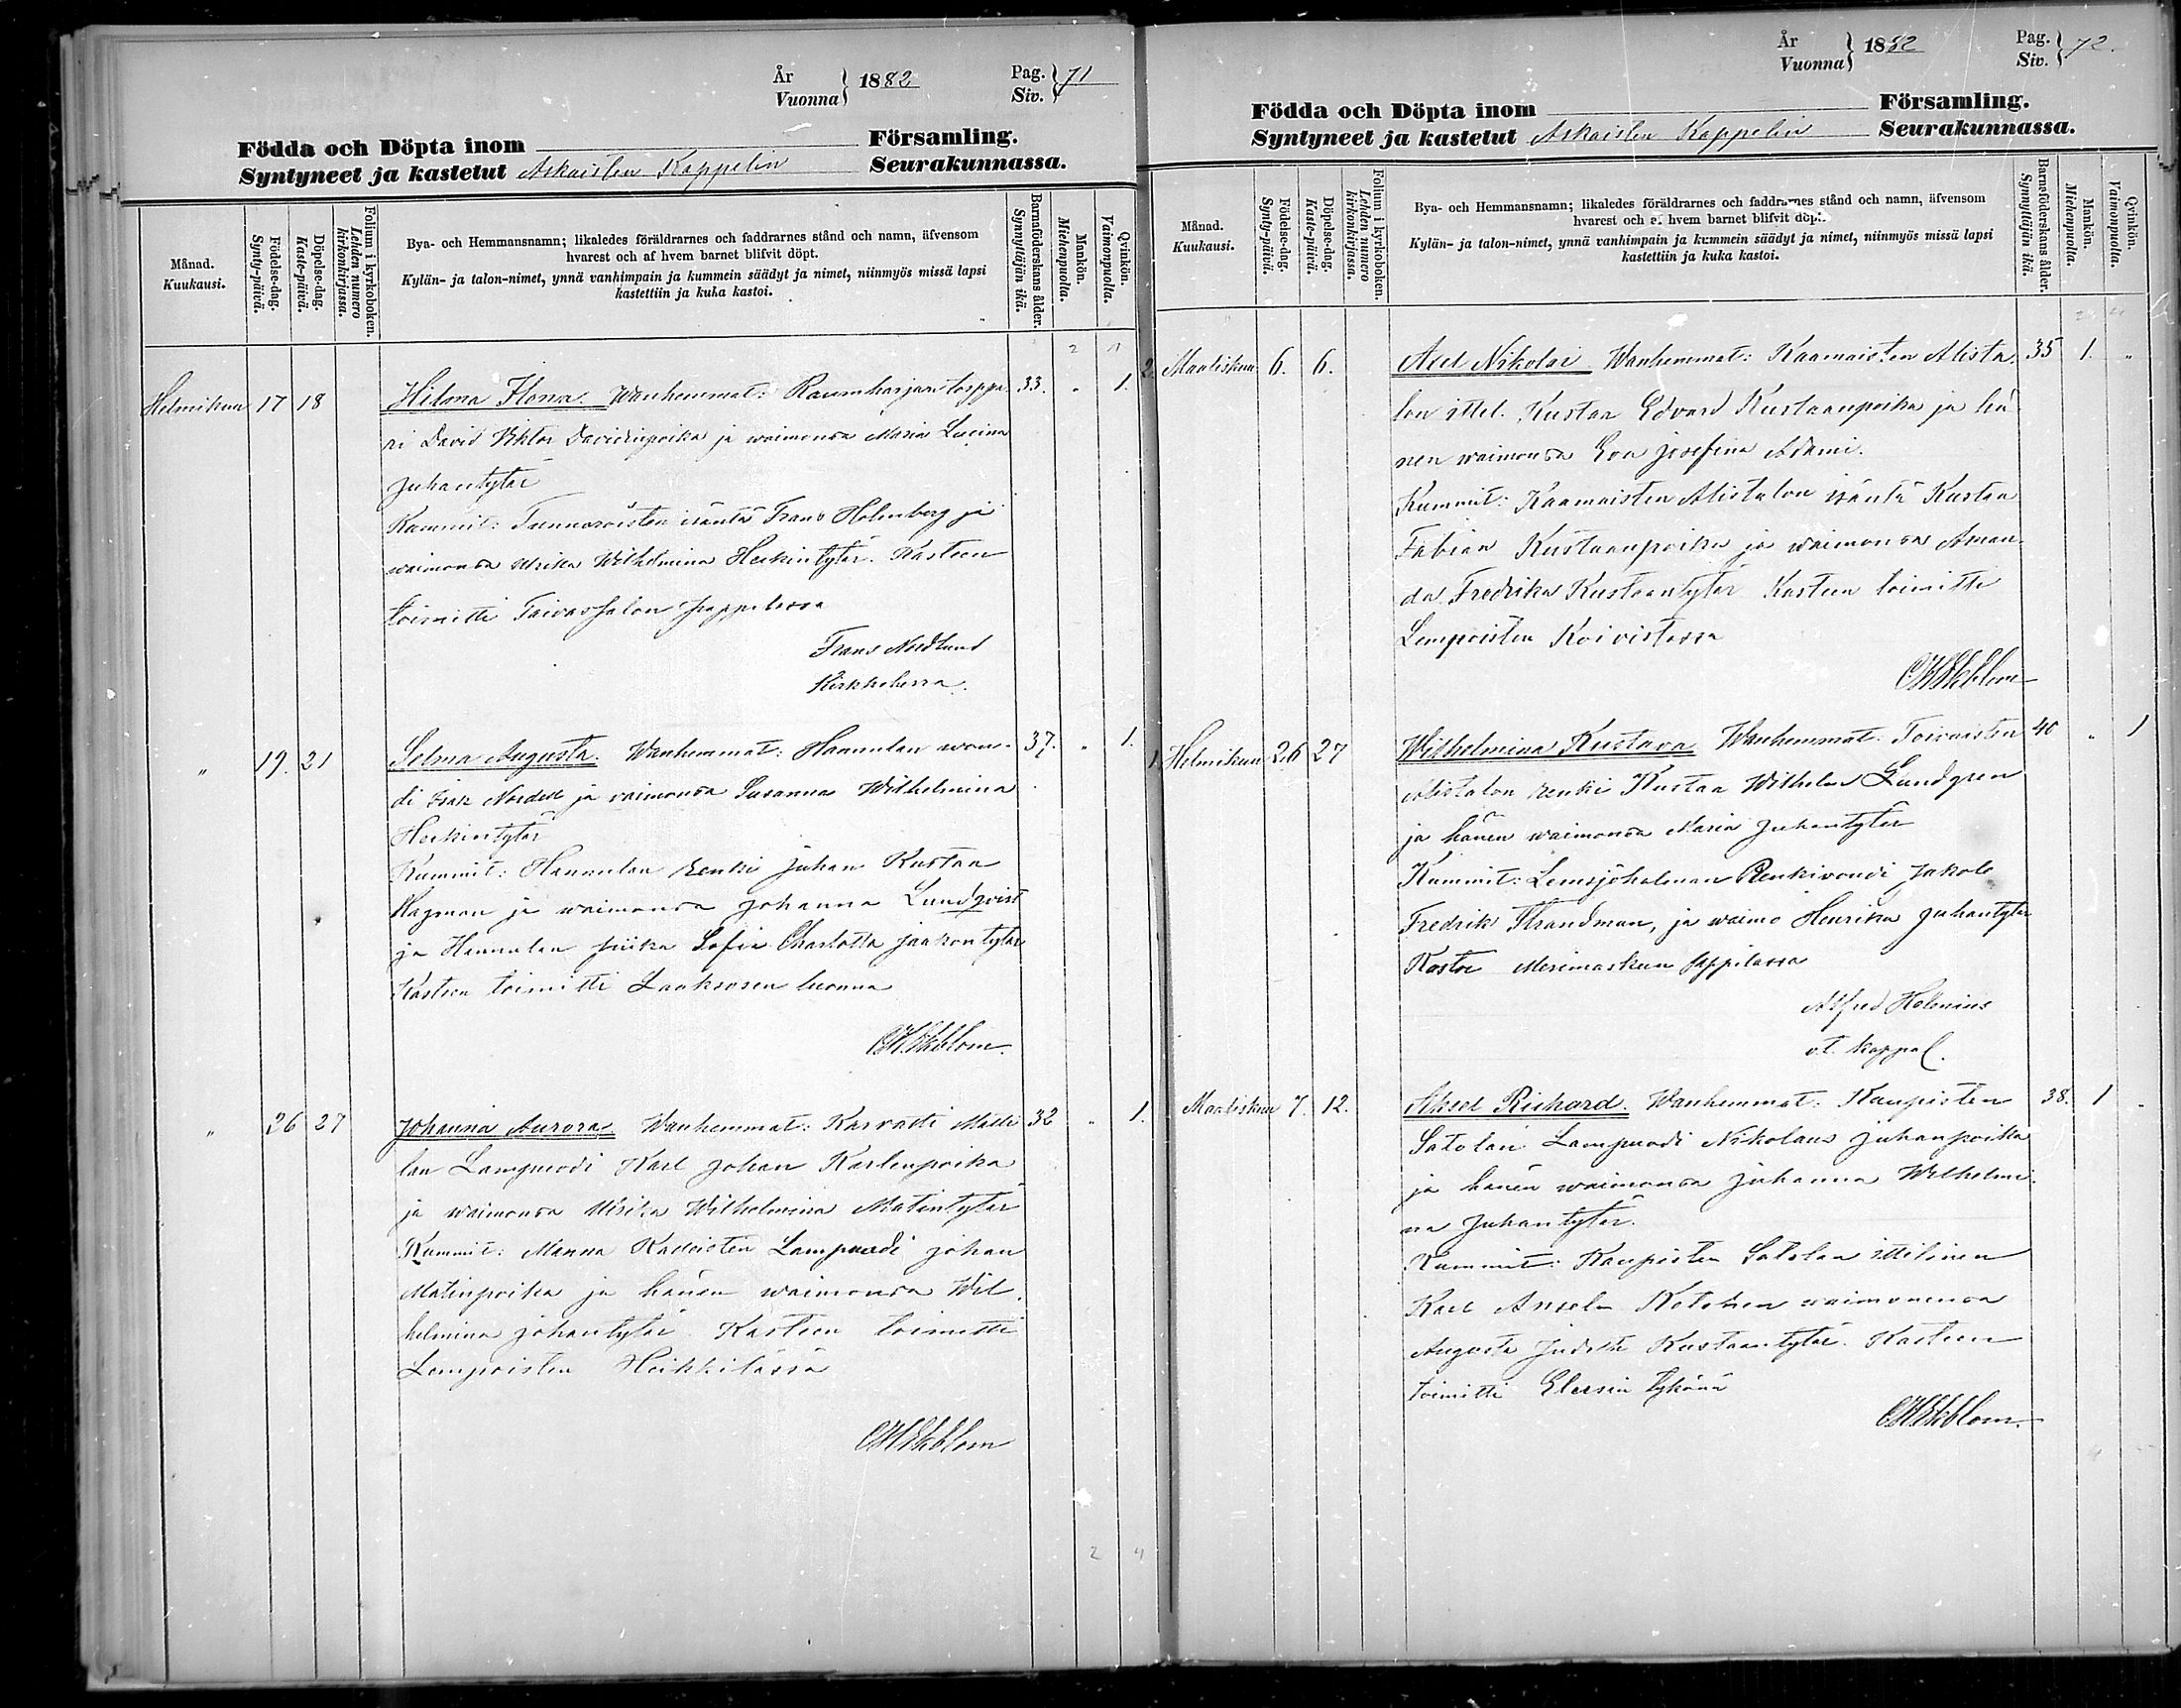 År
Vuonna } 1882
Pag.
Siv. } 71
Födda och Döpta inom Församling.
Syntyneet ja kastetut Askaisten Kappelin Seurakunnassa.
Månad.
Kuukausi.
Födelse-dag.
Synty-päivä.
Döpelse-dag.
Kaste-päivä.
Folium i kyrkoboken.
Lehden numero
kirkonkirjassa.
Bya- och Hemmansnamn; likaledes föräldrarnes och faddrarnes stånd och namn, äfvensom
hvarest och af hvem barnet blifvit döpt.
Kylän- ja talon-nimet, ynnä vanhimpain ja kummein säädyt ja nimet, niinmyös missä lapsi
kastettiin ja kuka kastoi.
Barnaföderskans ålder.
Synnyttäjän ikä.
Mankön.
Miehenpuolta.
Qvinkön.
Vaimonpuolta.
2 11
Helmikuu 17 18 Hilma Ilona. Wanhemmat: Raumharjan torppa- 33. " 1.
ri David Viktor Davidinpoika ja waimonsa Maria Lucina
Juhantytär
Kummit: isäntä Frans Holmberg ja
waimonsa Ulrika Wilhelmina Heikintytär. Kasteen
toimitti Taivassalon pappilassa
Frans Nordlund
Kirkkoherra.
" 19. 21 Selma Augusta. Wanhemmat: Hannulan wou- 37. " 1.
di Isak Nordell ja vaimonsa Susanna Wilhelmina
Heikintytär
Kummit: Hannulan renki Juhan Kustaa
Hagman ja waimonsa Johanna Lundqvist
ja Hannulan piika Sofia Charlotta Jaakontytär
Kasteen toimitti Laaksosen luonna
CWEkblom.
" 26 27 Johanna Aurora. Wanhemmat: Karvatti Matti 32 " 1.
lan Lampuodi Karl Johan Karlenpoika
ja waimonsa Ulrika Wilhelmina Matintytär
Kummit: Manna Lampuodi Johan
Matinpoika ja hänen waimonsa Wil-
helmina Johantytär. Kasteen toimitti
Lempoisten Heikkilässä
CWEkblom
2 4
År
Vuonna } 1882
Pag.
Siv. } 72.
Födda och Döpta inom Församling.
Syntyneet ja kastetut Askaisten Kappelin Seurakunnassa.
Månad.
Kuukausi.
Födelse-dag.
Synty-päivä.
Döpelse-dag.
Kaste-päivä.
Folium i kyrkoboken.
Lehden numero
kirkonkirjassa.
Bya- och Hemmansnamn; likaledes föräldrarnes och faddrarnes stånd och namn, äfvensom
hvarest och af hvem barnet blifvit döpt.
Kylän- ja talon-nimet, ynnä vanhimpain ja kummein säädyt ja nimet, niinmyös missä lapsi
kastettiin ja kuka kastoi.
Barnaföderskans ålder.
Synnyttäjän ikä.
Mankön.
Miehenpuolta.
Qvinkön.
Vaimonpuolta.
2. Maaliskuu 6. 6. Axel Nikolai Wanhemmat: Kaamaisten Alista- 35 1. "
lon ittel. Kustaa Edvard Kustaanpoika ja hä-
nen waimonsa Eva Josefina Adami.
Kummit: Kaamaisten Alistalon isäntä Kustaa
Fabian Kustaanpoika ja waimonsa Aman-
da Fredrika Kustaantytär Kasteen toimitti
Lempoisten Koivistossa
CWEkblom
1. Helmikuu 26 27 Wilhelmina Kustava Wanhemmat: Toivaisten 40 " 1
Alistalon renki Kustaa Wilhelm Lundgren
ja hänen waimonsa Maria Juhantytär
Kummit: Lemsjöholman Renkivoudi Jakob
Fredrik Strandman, ja waimo Henrika Juhantytär
Kastoi Merimaskun pappilassa
Alfred Helenius
v.t. kappal.
Maaliskuu 7. 12. Aksel Richard. Wanhemmat: Kaupisten 38. 1 "
Satolan Lampuodi Nikolaus Juhanpoika
ja hänen waimonsa Johanna Wilhelmi-
na Juhantytär.
Kummit: Kaupisten Satolan ittelinen
Karl Anselm waimonensa
Augusta Judith Kustaantytär. Kasteen
toimitti tykönä
CWEkblom.